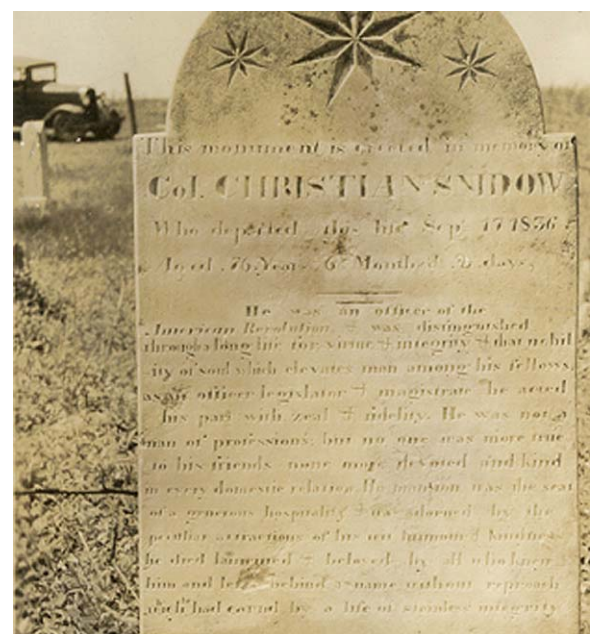 This monument is erected in memory of
Col. CHRISTIAN SNIDOW
Who departed this life Sep. 17 1836
Aged 76 Years 6 Months 2 days
He was an officer of the
American Revolution, & was distinguished
through a long life for virtue & integrity & that nobil
ity of soul which elevates man among his fellows,
as an officer legislator & magistrate he acted
his part with zeal & fidelity. He was not a
man of professions; but no one was more true
to his friends none more devoted and kind
in every domestic relation. His mansion was the seat
of a generous hospitality & was adorned by the
peculiar attractions of his own humour & kindness
he died lamented & beloved by all who knew
him and left behind a name without reproach
which had earned by a life of stainless integrity